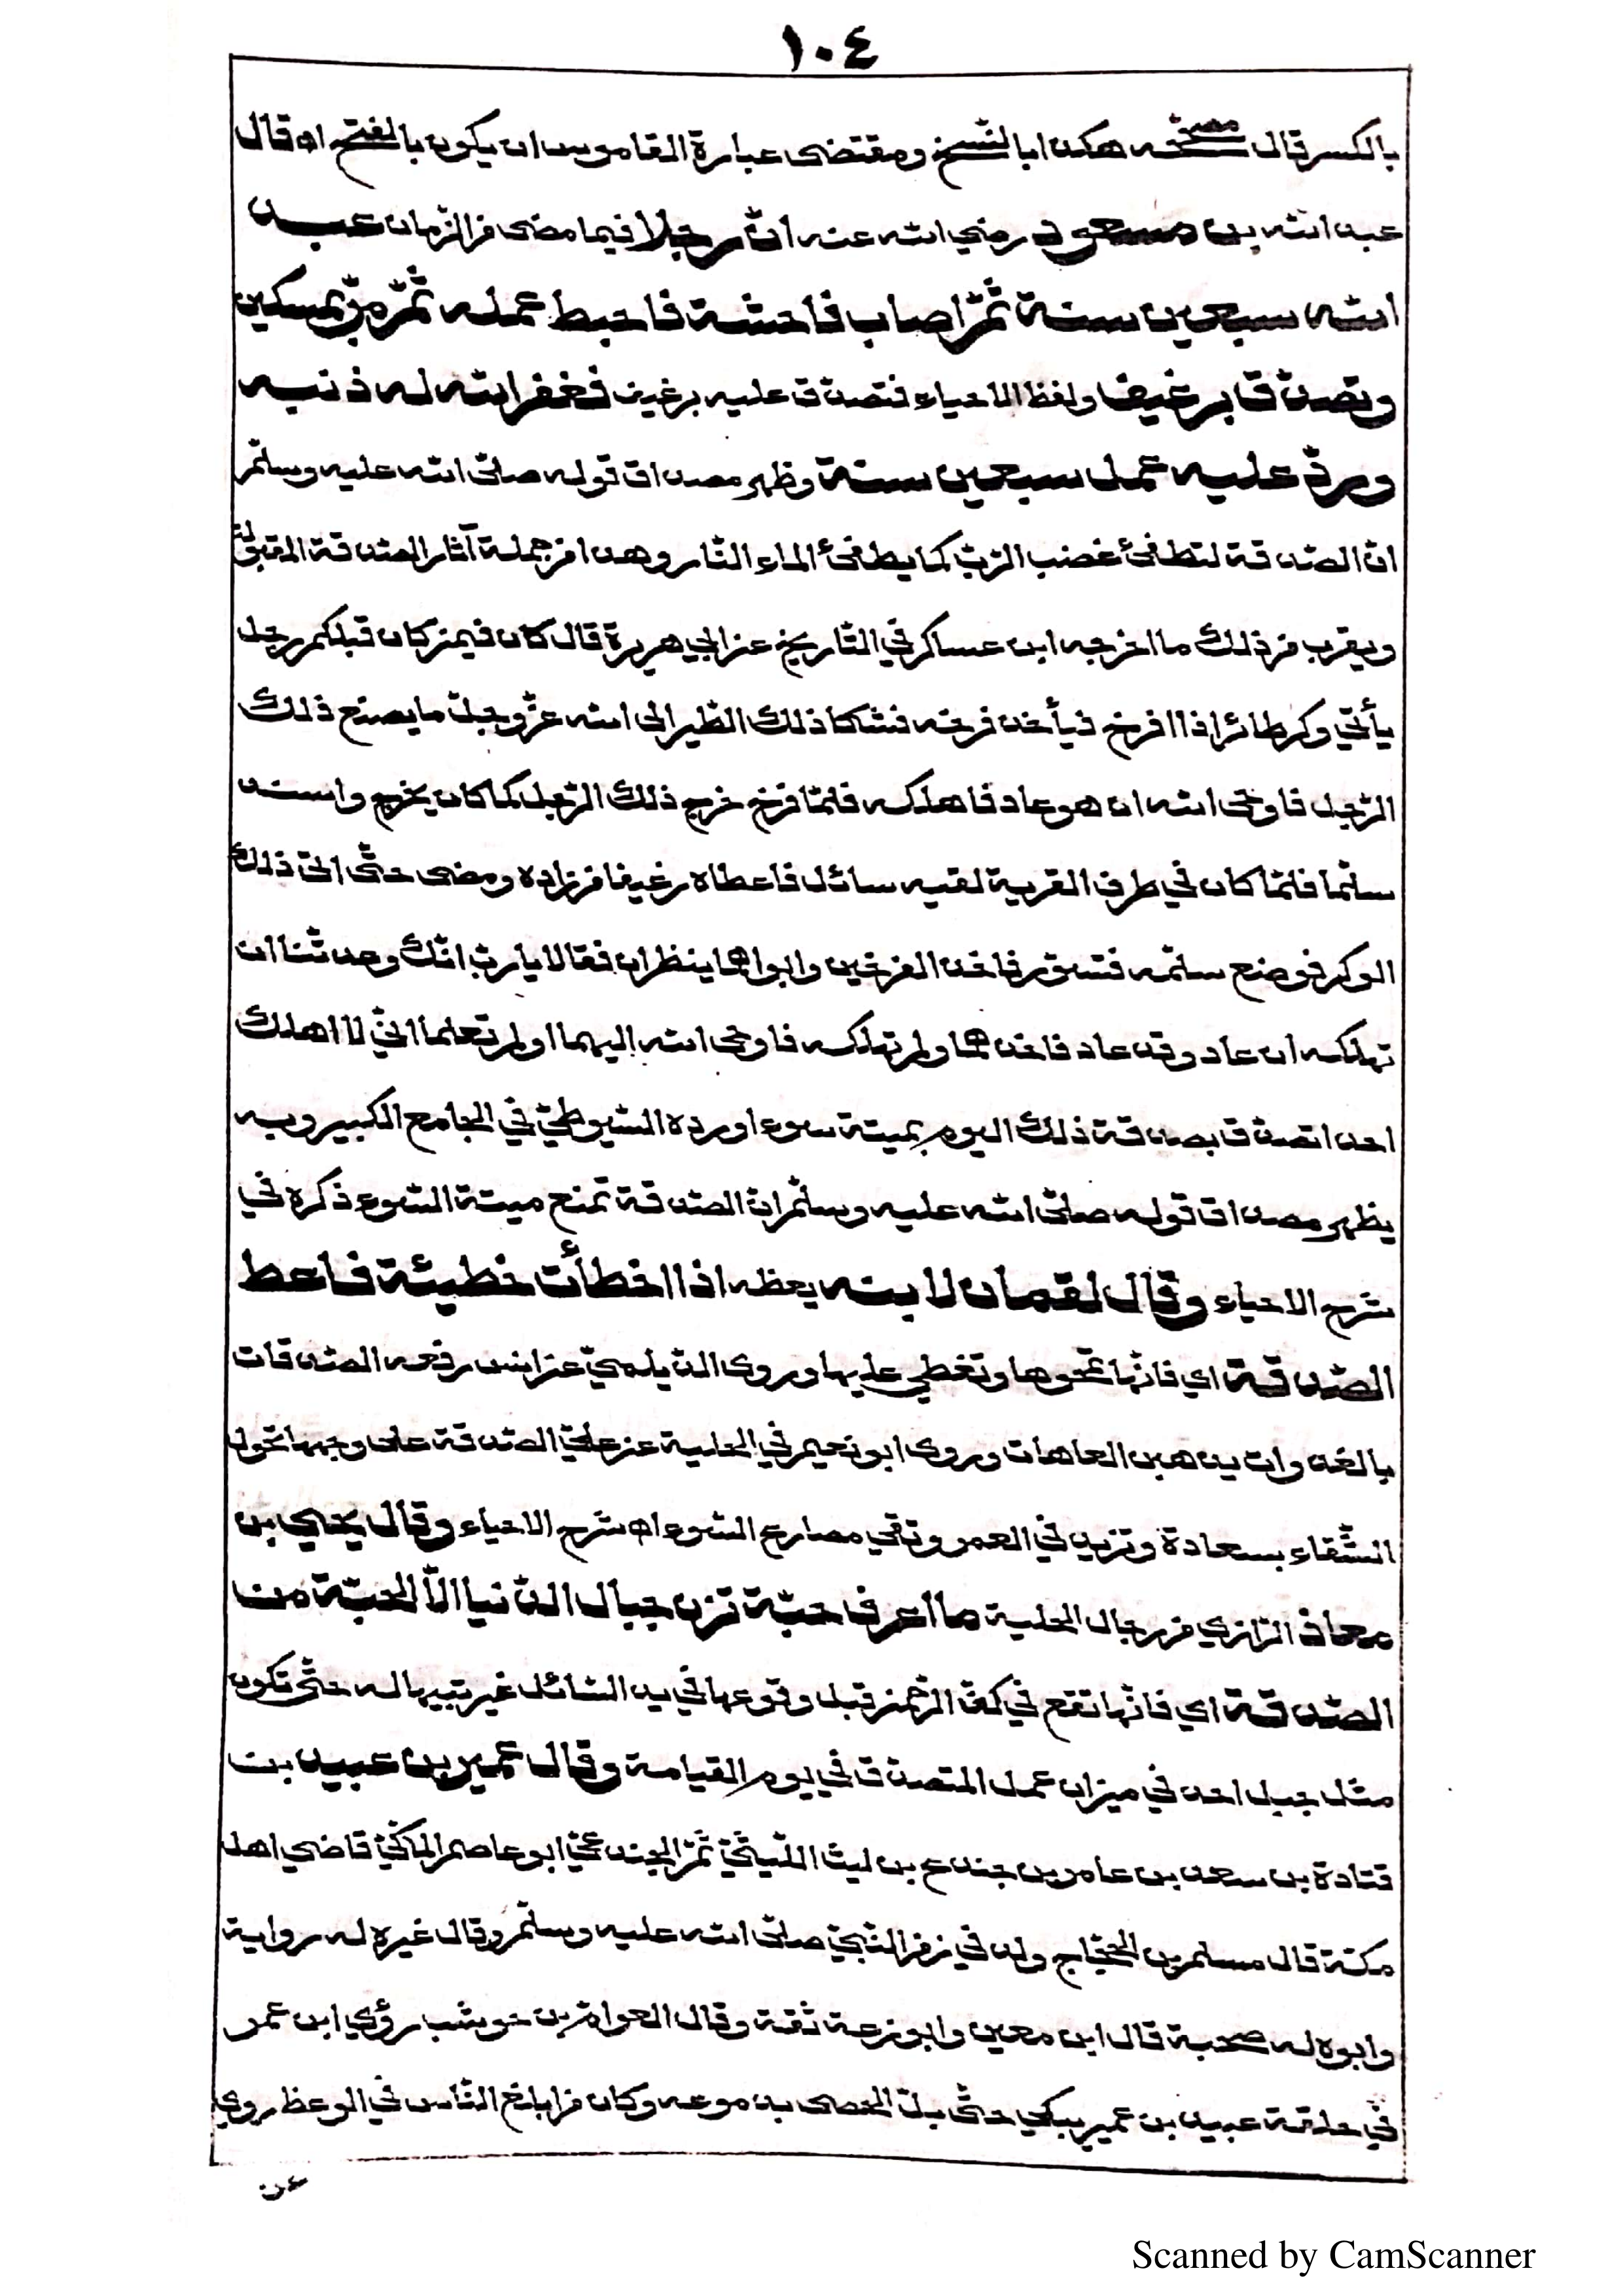 ١٠٤
بالكسر قال مصححه هكذا بالنسخ ومقتضى عبارة القاموس ان يكون بالفتح اه قال
عبد الله بن مسعود رضي الله عنه انّ رجلا فيما مضى من الزّمان عبد
الله سبعين سنة ثمّ اصاب فاحشة فاحبط عمله ثمّ مرّ بمسكين
وتصدّق برغيف ولفظ الاحياء فتصدّق عليه برغيف فغفر الله له ذنبه
وردّ عليه عمل سبعين سنة وظهر مصداق قوله صلّى الله عليه وسلّم
انّ الصّدقة لتطفئ غضب الرّبّ كما يطفئ الماء النّار وهذا من جملة آثار الصّدقة المقبولة
ويقرب من ذلك ما اخرجه ابن عساكر في التّاريخ عن ابي هريرة قال كان فيمن كان قبلكم رجل
يأتي وكر طائر اذا افرخ فيأخذ فرخه فشكا ذلك الطّير الى الله عزّ وجلّ ما يصنع ذلك
الرّجل فاوحى الله ان هو عاد فاهلكه فلمّا فرخ خرج ذلك الرّجل كما كان يخرج واسند
سلّما فلمّا كان في طرف القرية لقيه سائل فاعطاه رغيفا من زاده ومضى حتّى اتى ذلك
الوكر فوضع سلّمه فتسوّر فاخذ الفرخين وابواهما ينظران فقالا يا ربّ انّك وعدتنا ان
تهلكه ان عاد وقد عاد فاخذهما ولم تهلكه فاوحى الله اليهما اولم تعلما انّي لا اهلك
احدا تصدّق بصدقة ذلك اليوم بميتة سوء اورده السّيوطيّ في الجامع الكبير وبه
يظهر مصداق قوله صلّى الله عليه وسلّم انّ الصّدقة تمنع ميتة السّوء ذكره في
شرح الاحياء وقال لقمان لابنه يعظه اذا اخطأت خطيئة فاعط
الصّدقة اي فانّها تمحوها وتغطي عليها وروى الدّيلميّ عن انس رفعه الصّدقات
بالغدوات يذهبن العاهات وروى ابو نعيم في الحلية عن عليّ الصّدقة على وجهها تحوّل
الشّقاء بسعادة وتزيد في العمر وتقي مصارع السّوء اه شرح الاحياء وقال يحيى بن
معاذ الرّازي من رجال الحلية ما اعرف حبّة تزن جبال الدّنيا الّا الحبّة من
الصّدقة اي فانّها تقع في كفّ الرّحمن قبل وقوعها في يد السّائل فيربّيها له حتّى تكون
مثل جبل احد في ميزان عمل المتصدّق في يوم القيامة وقال عمير بن عبيد بن
قتادة بن سعد بن عامر بن جندع بن ليث اللّيثيّ ثمّ الجندعيّ ابو عاصم المكّيّ قاضي اهل
مكّة قال مسلم بن الحجّاج ولد في زمن النّبيّ صلّى الله عليه وسلّم وقال غيره له رواية
وابوه له صحبة قال ابن معين وابو زرعة ثقة وقال العوّام بن حوشب رؤي ابن عمر
في حلقة عبيد بن عمير يبكي حتّى بلّ الحصى بدموعه وكان من ابلغ النّاس في الوعظ روي
عن
Scanned by CamScanner